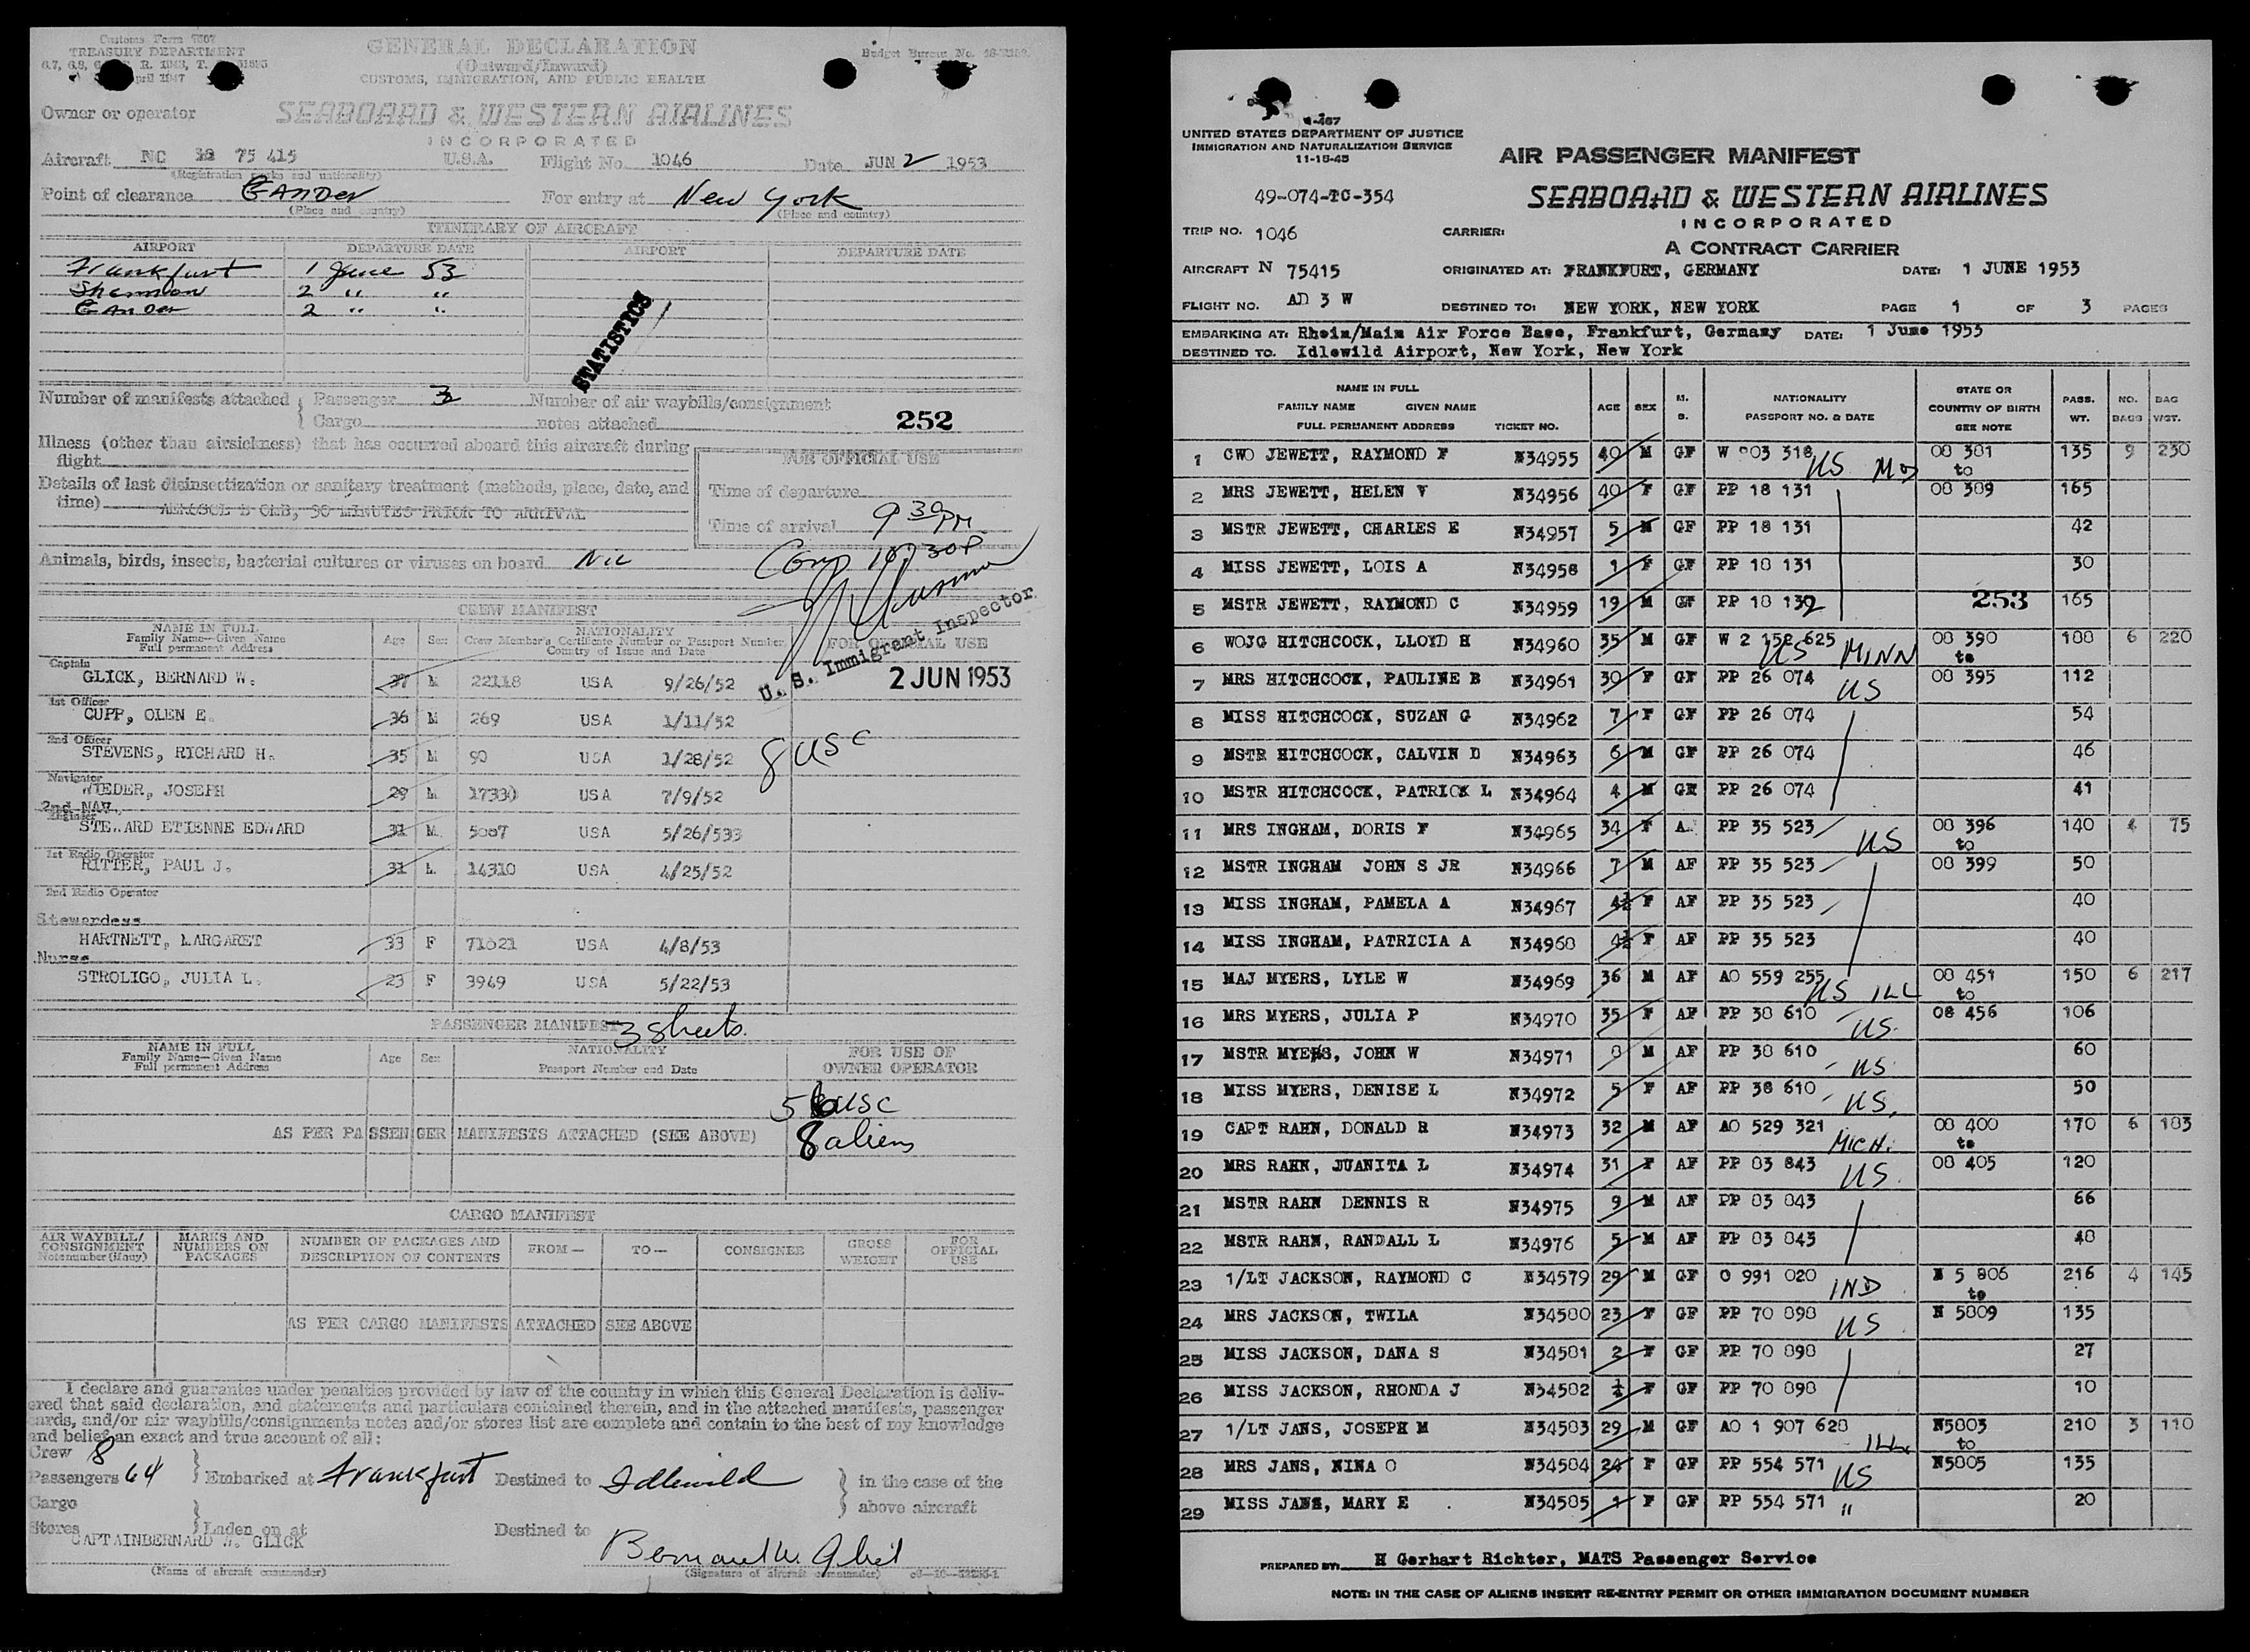 Customs Form 7507
TREASURY DEPARTMENT
April 1947
GENERAL DECLARATION
(Outward/Inward)
CUSTOMS, IMMIGRATION, AND PUBLIC HEALTH
Budget Bureau No.
Owner or operator SEABOARD & WESTERN AIRLINES
INCORPORATED
Aircraft NC 75 415 U.S.A. Flight No. 1046 Date JUN 2 1953
(Registration marks and nationality)
Point of clearance Gander For entry at New York
(Place and country) (Place and country)
ITINERARY OF AIRCRAFT
AIRPORT DEPARTURE DATE AIRPORT DEPARTURE DATE
Frankfurt 1 June 53
Shannon 2 " "
Gander 2 " "
STATISTICS
Number of manifests attached { Passenger 3 Number of air waybills/consignment
Cargo notes attached 252
Illness (other than airsickness) that has occurred aboard this aircraft during
flight
FOR OFFICIAL USE
Details of last disinsectization or sanitary treatment (methods, place, date, and
time) AEROSOL BOMB, 30 MINUTES PRIOR TO ARRIVAL
Time of departure
Time of arrival 9 30 PM
Animals, birds, insects, bacterial cultures or viruses on board Nil
Comp 10:30P
U. S. Immigrant Inspector
CREW MANIFEST
NAME IN FULL Age Sex NATIONALITY FOR OFFICIAL USE
Family Name—Given Name Crew Member's Certificate Number or Passport Number
Full permanent Address Country of Issue and Date
2 JUN 1953
Captain
GLICK, BERNARD W. 37 M 22118 USA 9/26/52
1st Officer
CUPP, OLEN E. 36 M 269 USA 1/11/52
2nd Officer
STEVENS, RICHARD H. 35 M 90 USA 1/28/52
8 USC
Navigator
WIEDER, JOSEPH 29 M 17330 USA 7/9/52
2nd NAV.
STEWARD ETIENNE EDWARD 31 M 5887 USA 5/26/533
1st Radio Operator
RITTER, PAUL J. 31 M 14310 USA 4/25/52
2nd Radio Operator
Stewardess
HARTNETT, MARGARET 33 F 71821 USA 4/8/53
Nurse
STROLIGO, JULIA L. 23 F 3949 USA 5/22/53
PASSENGER MANIFEST 3 sheets.
NAME IN FULL Age Sex NATIONALITY FOR USE OF
Family Name—Given Name Passport Number and Date OWNER OPERATOR
Full permanent Address
56 USC
AS PER PASSENGER MANIFESTS ATTACHED (SEE ABOVE) 8 aliens
CARGO MANIFEST
AIR WAYBILL/ CONSIGNMENT Note number (if any) MARKS AND NUMBERS ON PACKAGES NUMBER OF PACKAGES AND DESCRIPTION OF CONTENTS FROM— TO— CONSIGNEE GROSS WEIGHT FOR OFFICIAL USE
AS PER CARGO MANIFESTS ATTACHED SEE ABOVE
I declare and guarantee under penalties provided by law of the country in which this General Declaration is deliv-
ered that said declaration, and statements and particulars contained therein, and in the attached manifests, passenger
cards, and/or air waybills/consignments notes and/or stores list are complete and contain to the best of my knowledge
and belief an exact and true account of all:
Crew 8
Passengers 64 } Embarked at Frankfurt Destined to Idlewild } in the case of the
Cargo above aircraft
Stores } Laden on at Destined to
CAPTAINBERNARD W. GLICK Bernard W. Glick
(Name of aircraft commander) (Signature of aircraft commander)
UNITED STATES DEPARTMENT OF JUSTICE
IMMIGRATION AND NATURALIZATION SERVICE
11-15-45
AIR PASSENGER MANIFEST
49-074-TC-354
SEABOARD & WESTERN AIRLINES
INCORPORATED
TRIP NO. 1046 CARRIER: A CONTRACT CARRIER
AIRCRAFT N 75415 ORIGINATED AT: FRANKFURT, GERMANY DATE: 1 JUNE 1953
FLIGHT NO. AD 3 W DESTINED TO: NEW YORK, NEW YORK PAGE 1 OF 3 PAGES
EMBARKING AT: Rhein/Main Air Force Base, Frankfurt, Germany DATE: 1 June 1953
DESTINED TO. Idlewild Airport, New York, New York
NAME IN FULL FAMILY NAME GIVEN NAME FULL PERMANENT ADDRESS TICKET NO. AGE SEX M. S. NATIONALITY PASSPORT NO. & DATE STATE OR COUNTRY OF BIRTH SEE NOTE PASS. WT. NO. BAGS BAG WGT.
1 CWO JEWETT, RAYMOND F N34955 40 M GF W 903 318 US MO 08 381 to 135 9 230
2 MRS JEWETT, HELEN V N34956 40 F GF PP 18 131 08 389 165
3 MSTR JEWETT, CHARLES E N34957 5 M GF PP 18 131 42
4 MISS JEWETT, LOIS A N34958 1 F GF PP 18 131 30
5 MSTR JEWETT, RAYMOND C N34959 19 M GF PP 18 132 253 165
6 WOJG HITCHCOCK, LLOYD H N34960 35 M GF W 2 152 625 US MINN 08 390 to 188 6 220
7 MRS HITCHCOCK, PAULINE B N34961 30 F GF PP 26 074 US 08 395 112
8 MISS HITCHCOCK, SUZAN G N34962 7 F GF PP 26 074 54
9 MSTR HITCHCOCK, CALVIN D N34963 6 M GF PP 26 074 46
10 MSTR HITCHCOCK, PATRICK L N34964 4 M GF PP 26 074 41
11 MRS INGHAM, DORIS F N34965 34 F A. PP 35 523 US 08 396 to 140 4 75
12 MSTR INGHAM JOHN S JR N34966 7 M AF PP 35 523 08 399 50
13 MISS INGHAM, PAMELA A N34967 4½ F AF PP 35 523 40
14 MISS INGHAM, PATRICIA A N34968 4½ F AF PP 35 523 40
15 MAJ MYERS, LYLE W N34969 36 M AF AO 559 255 US ILL 08 451 to 150 6 217
16 MRS MYERS, JULIA P N34970 35 F AF PP 38 610 US. 08 456 106
17 MSTR MYERS, JOHN W N34971 8 M AF PP 38 610 US. 60
18 MISS MYERS, DENISE L N34972 5 F AF PP 38 610 US. 50
19 CAPT RAHN, DONALD R N34973 32 M AF AO 529 321 MICH. 08 400 to 170 6 183
20 MRS RAHN, JUANITA L N34974 31 F AF PP 83 843 US. 08 405 120
21 MSTR RAHN DENNIS R N34975 9 M AF PP 83 843 66
22 MSTR RAHN, RANDALL L N34976 5 M AF PP 83 843 48
23 1/LT JACKSON, RAYMOND C N34579 29 M GF O 991 020 IND N 5 806 to 216 4 145
24 MRS JACKSON, TWILA N34580 23 F GF PP 70 898 US N 5809 135
25 MISS JACKSON, DANA S N34581 2 F GF PP 70 898 27
26 MISS JACKSON, RHONDA J N34582 ½ F GF PP 70 898 10
27 1/LT JANS, JOSEPH M N34583 29 M GF AO 1 907 628 ILL. N5803 to 210 3 110
28 MRS JANS, NINA O N34584 24 F GF PP 554 571 US N5805 135
29 MISS JANS, MARY E N34585 1 F GF PP 554 571 " 20
PREPARED BY: H Gerhart Richter, MATS Passenger Service
NOTE: IN THE CASE OF ALIENS INSERT RE-ENTRY PERMIT OR OTHER IMMIGRATION DOCUMENT NUMBER